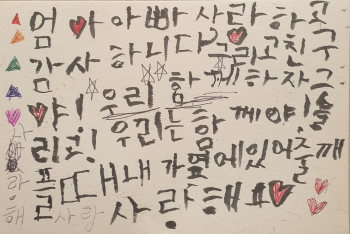 엄마 아빠 사랑하고
감사합니다 그리고 친구
야! 우리 함께하자 그
리고! 우리는 함께야! 슬
플때 내가 옆에있어줄께
사랑해
사랑